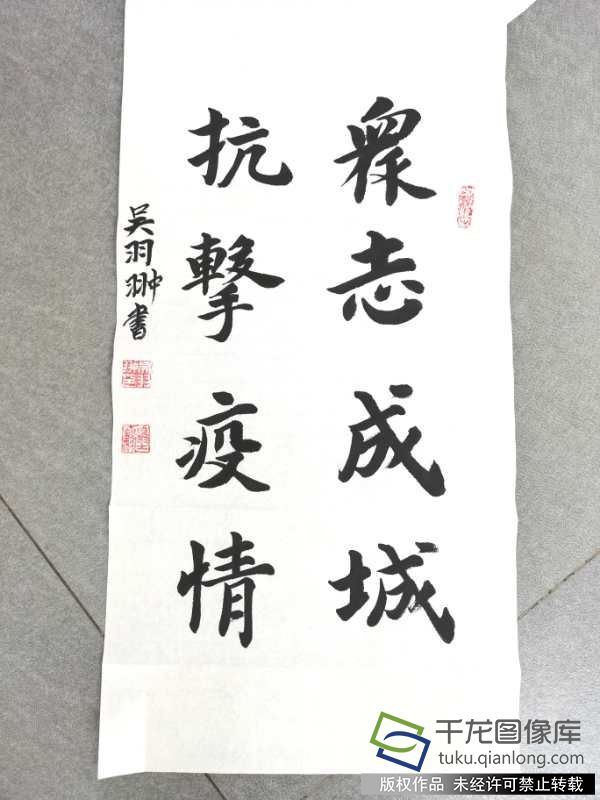 眾志成城
抗擊疫情
吴羽翀書
千龙图像库
tuku.qianlong.com
版权作品 未经许可禁止转载